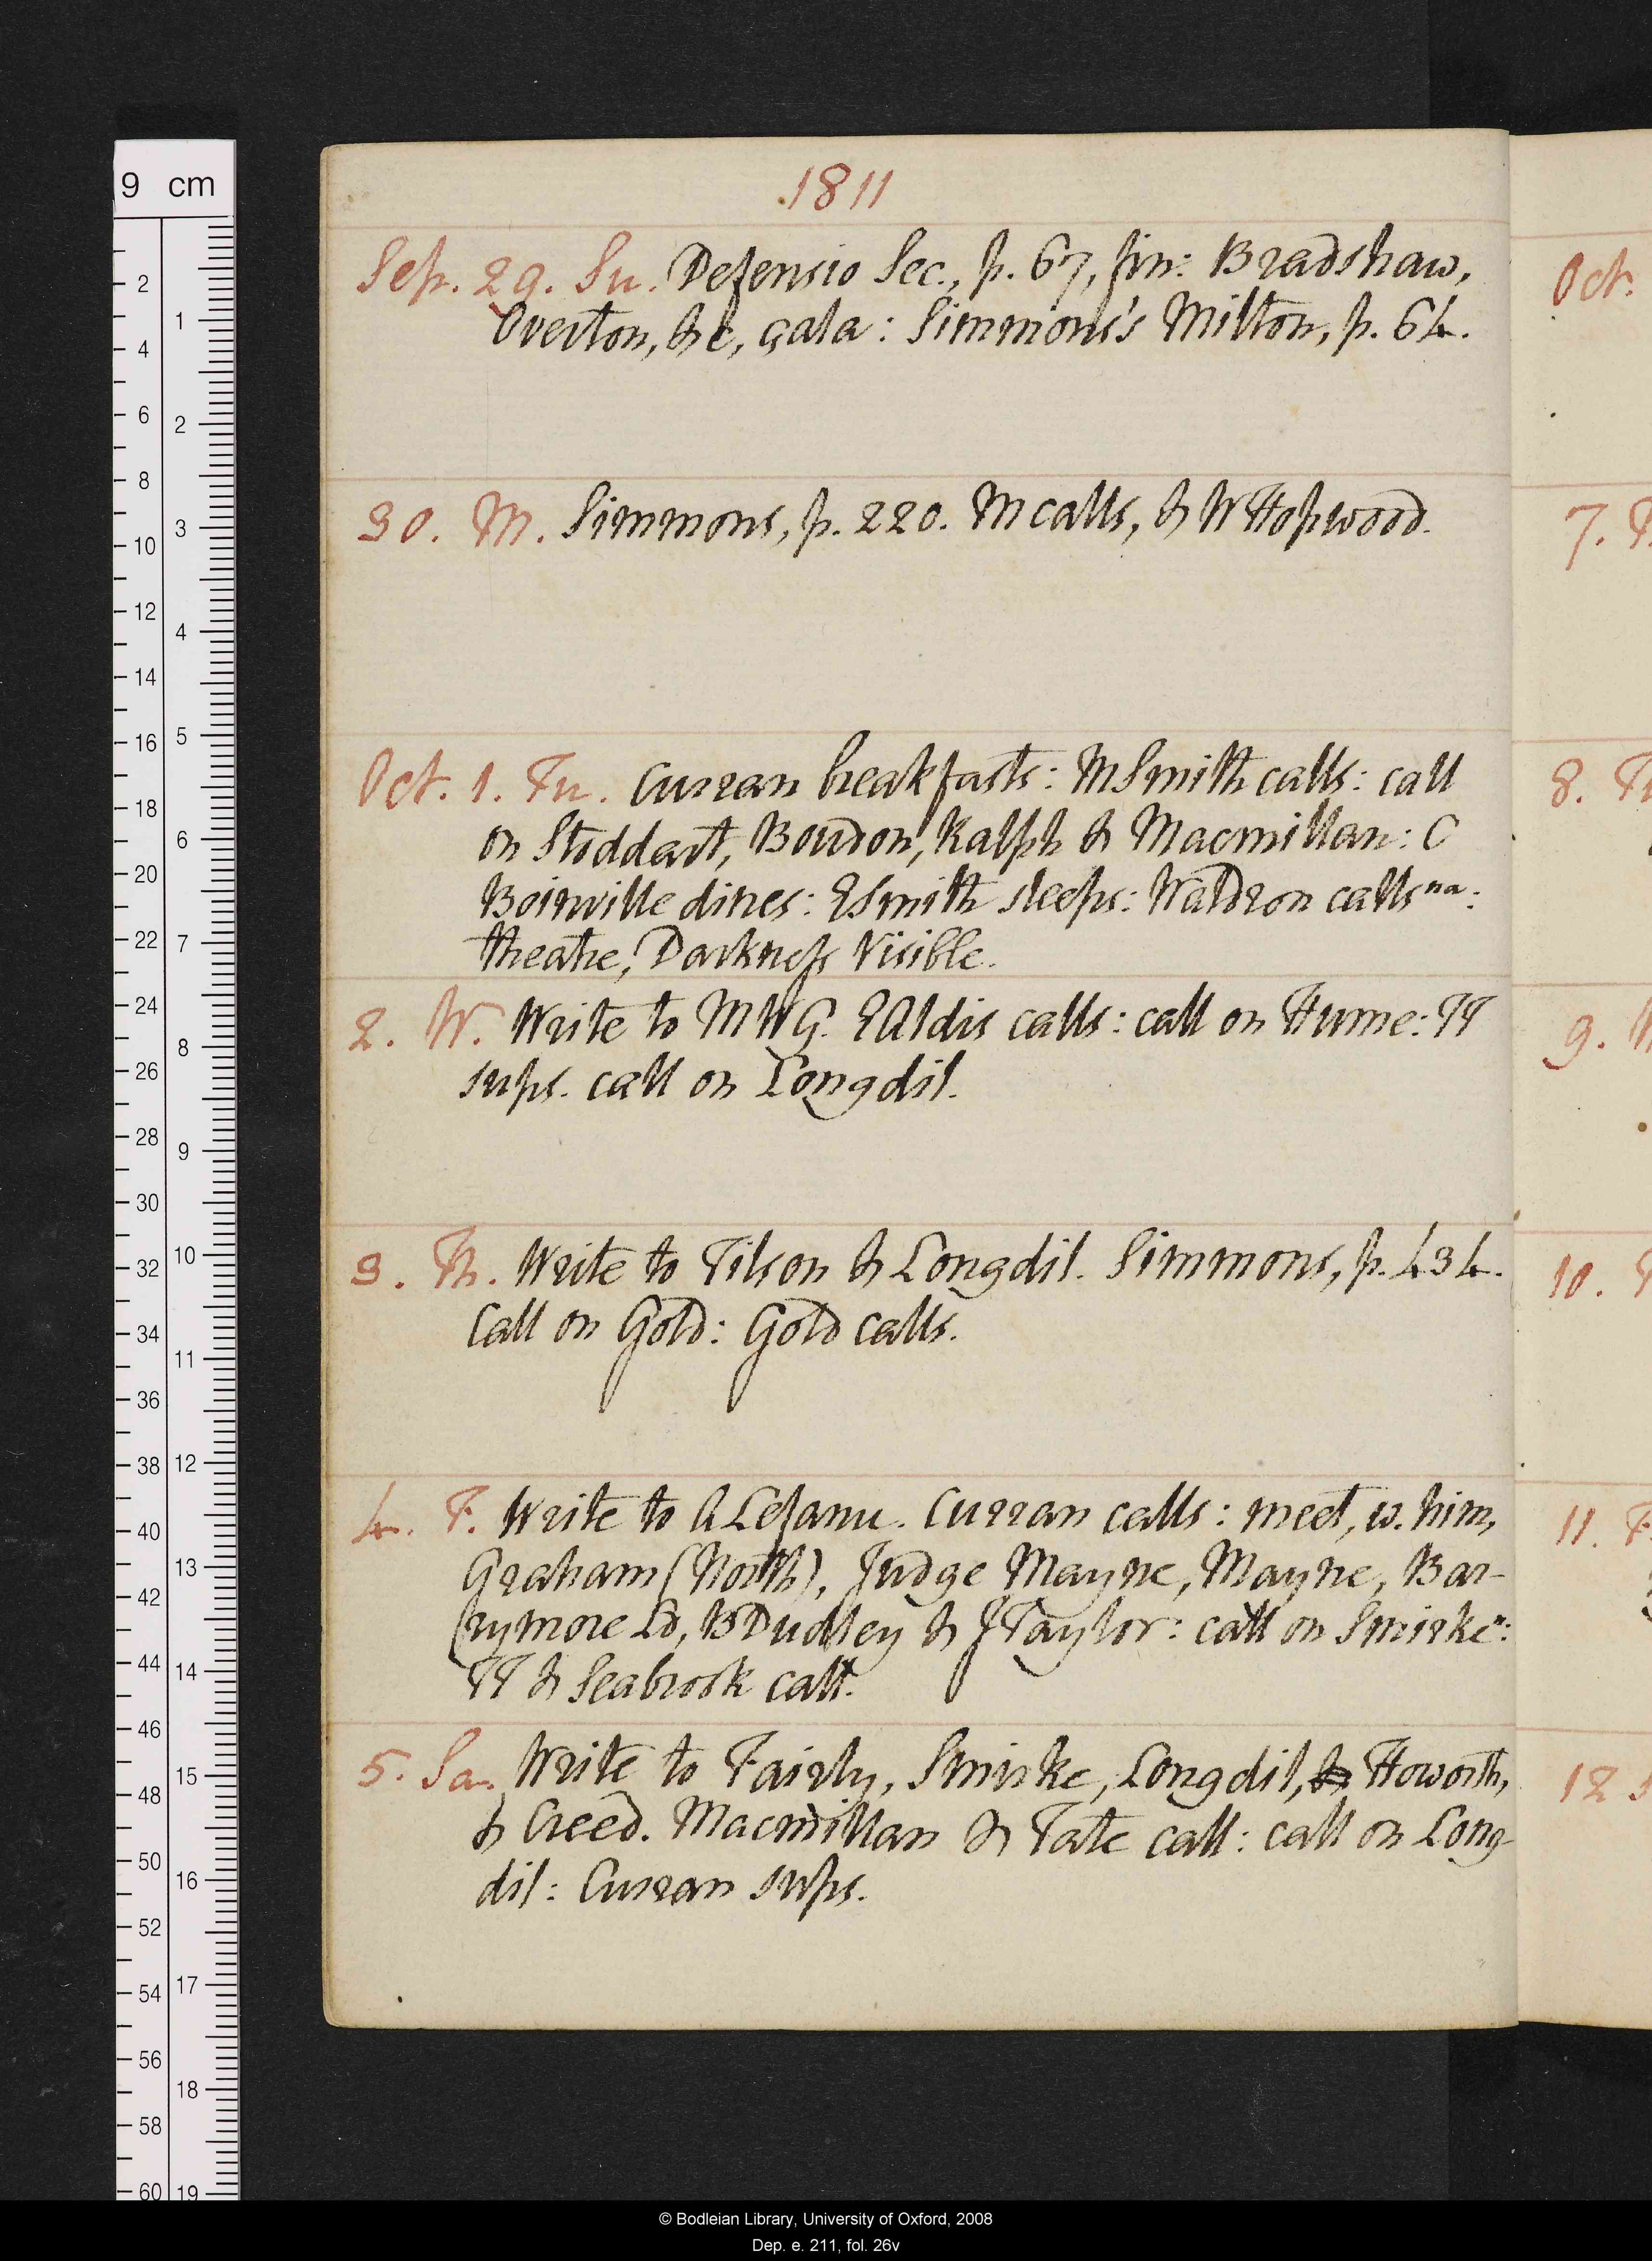 1811
Sep. 29. Su. Defensio Sec., p. 67, fin: Bradshaw,
Overton, &c, çala: Simmons's Milton, p. 64.
30. M. Simmons, p. 220. M calls, & W Hopwood.
Oct. 1. Tu. Curran breakfasts: M Smith calls: call
on Stoddart, Boudon, Ralph & Macmillan: C
Boinville dines: E Smith sleeps: Waldron calls na:
theatre, Darkness Visible.
2. W. Write to MWG. E Aldis calls: call on Hume: TT
sups. call on Longdil.
3. Th. Write to Tilson & Longdil. Simmons, p. 434.
Call on Gold: Gold calls.
4. F. Write to A Lefanu. Curran calls: meet, w. him,
Graham (North), Judge Mayne, Mayne, Bar-
rymore Ld, B Dudley & J Taylor: call on Smirke n:
TT & Seabrook call.
5. Sa. Write to Fairly, Smirke, Longdil, & Howorth,
& Creed. Macmillan & Tate call: call on Long-
dil: Curran sups.
Oct.
7. T
8.
9.
10.
11. F
12
9 cm
2
4
6
8
10
12
14
16
18
20
22
24
26
28
30
32
34
36
38
40
42
44
46
48
50
52
54
56
58
60
1
2
3
4
5
6
7
8
9
10
11
12
13
14
15
16
17
18
19
© Bodleian Library, University of Oxford, 2008
Dep. e. 211, fol. 26v